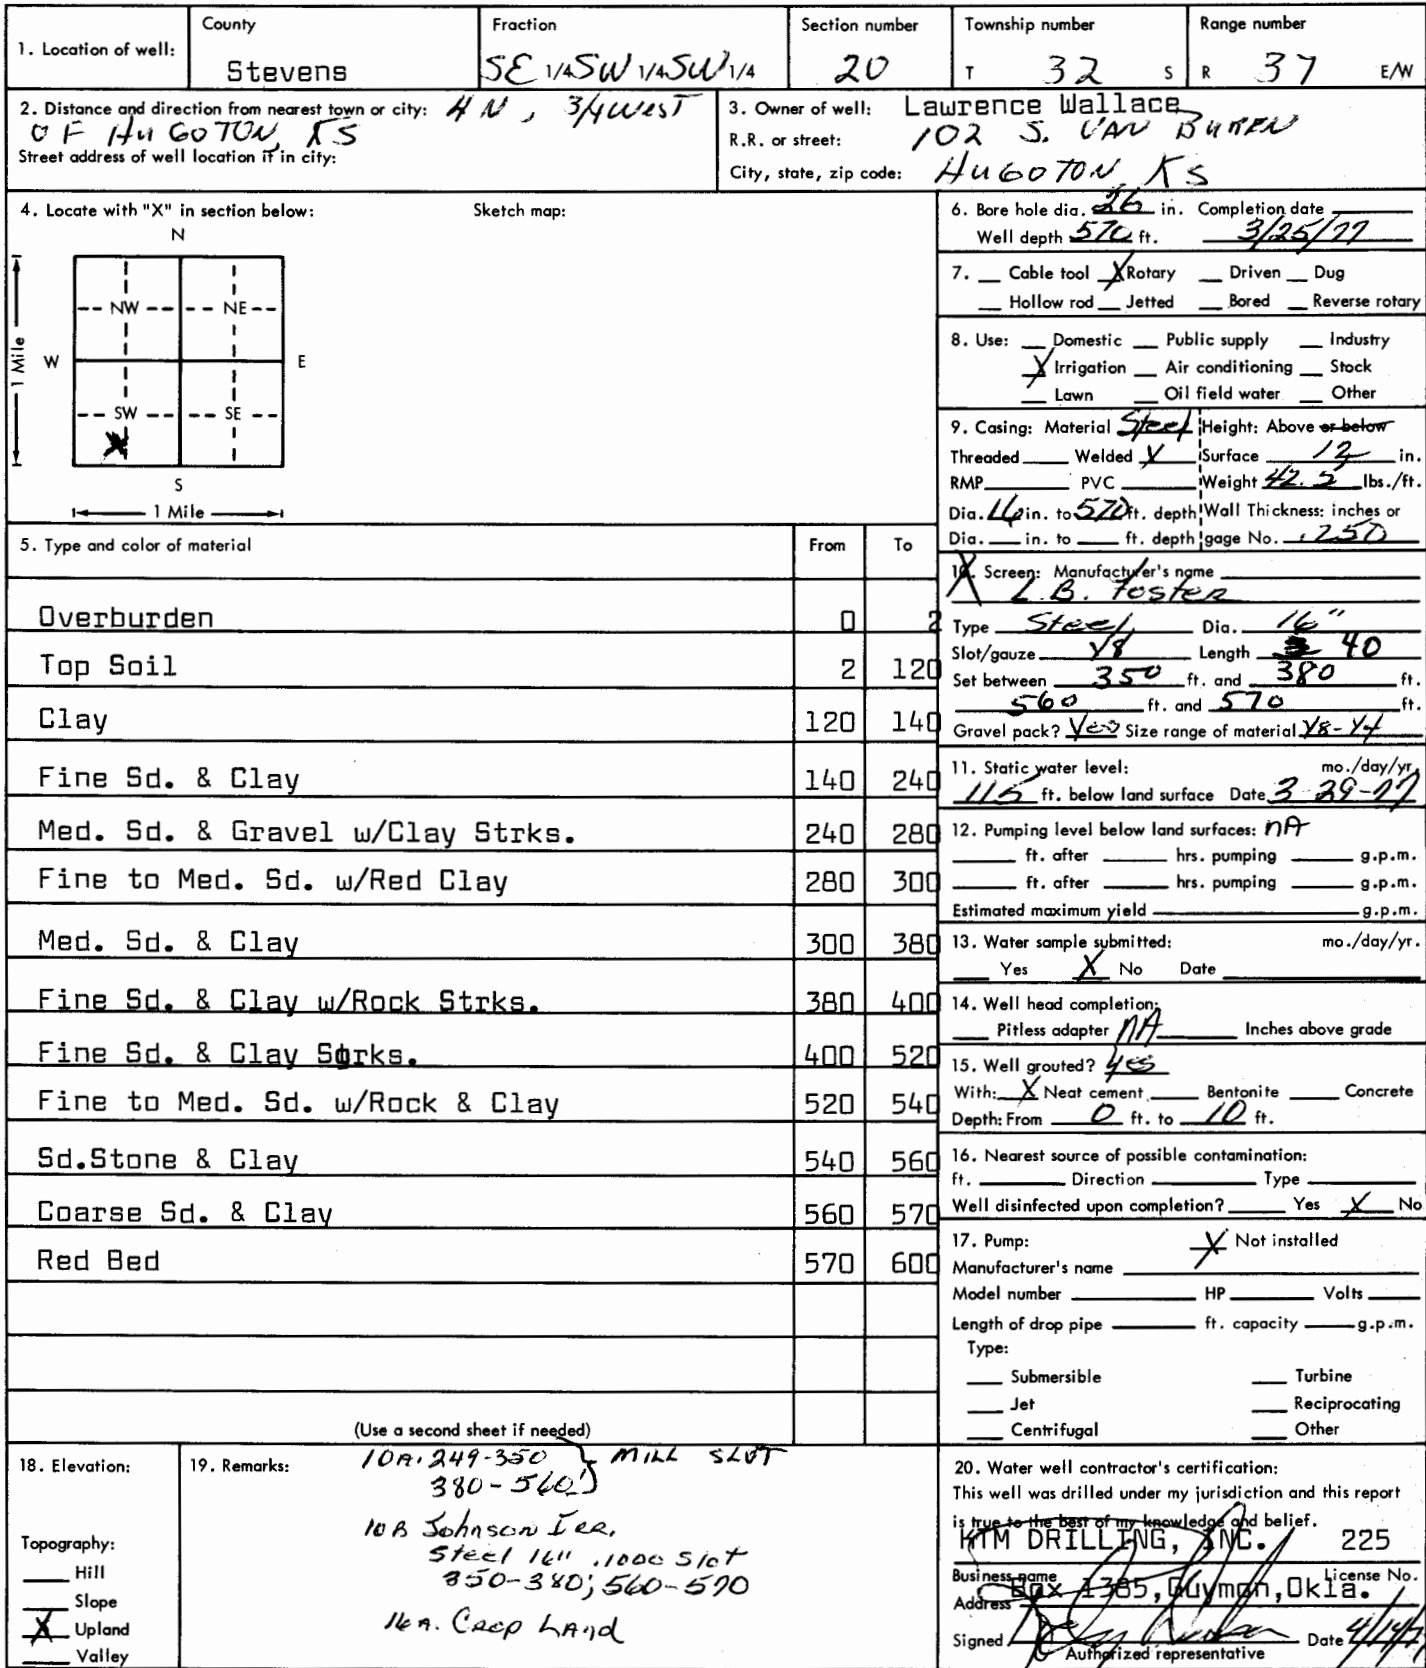 1. Location of well:
County
Stevens
Fraction
SE 1/4 SW 1/4 SW 1/4
Section number
20
Township number
T 32 S
Range number
R 37 E/W
2. Distance and direction from nearest town or city: 4 N, 3/4 West
OF HUGOTON, KS
Street address of well location if in city:
3. Owner of well: Lawrence Wallace
R.R. or street: 102 S. VAN BUREN
City, state, zip code: HUGOTON, KS
4. Locate with "X" in section below:
Sketch map:
N
NW NE
W E
1 Mile
SW SE
X
S
1 Mile
5. Type and color of material From To
Overburden 0 2
Top Soil 2 120
Clay 120 140
Fine Sd. & Clay 140 240
Med. Sd. & Gravel w/Clay Strks. 240 280
Fine to Med. Sd. w/Red Clay 280 300
Med. Sd. & Clay 300 380
Fine Sd. & Clay w/Rock Strks. 380 400
Fine Sd. & Clay Strks. 400 520
Fine to Med. Sd. w/Rock & Clay 520 540
Sd.Stone & Clay 540 560
Coarse Sd. & Clay 560 570
Red Bed 570 600
(Use a second sheet if needed)
6. Bore hole dia. 26 in. Completion date
Well depth 570 ft. 3/25/77
7. Cable tool X Rotary Driven Dug
Hollow rod Jetted Bored Reverse rotary
8. Use: Domestic Public supply Industry
X Irrigation Air conditioning Stock
Lawn Oil field water Other
9. Casing: Material Steel Height: Above or below
Threaded Welded X Surface 12 in.
RMP PVC Weight 42.5 lbs./ft.
Dia. 16 in. to 570 ft. depth Wall Thickness: inches or
Dia. in. to ft. depth gage No. .250
10. Screen: Manufacturer's name
L.B. Foster
Type Steel Dia. 16"
Slot/gauze 1/8 Length 40
Set between 350 ft. and 380 ft.
560 ft. and 570 ft.
Gravel pack? Yes Size range of material 1/8-1/4
11. Static water level: mo./day/yr.
115 ft. below land surface Date 3-29-77
12. Pumping level below land surfaces: NA
ft. after hrs. pumping g.p.m.
ft. after hrs. pumping g.p.m.
Estimated maximum yield g.p.m.
13. Water sample submitted: mo./day/yr.
Yes X No Date
14. Well head completion:
Pitless adapter NA Inches above grade
15. Well grouted? yes
With: X Neat cement Bentonite Concrete
Depth: From 0 ft. to 10 ft.
16. Nearest source of possible contamination:
ft. Direction Type
Well disinfected upon completion? Yes X No
17. Pump: X Not installed
Manufacturer's name
Model number HP Volts
Length of drop pipe ft. capacity g.p.m.
Type:
Submersible Turbine
Jet Reciprocating
Centrifugal Other
18. Elevation:
Topography:
Hill
Slope
X Upland
Valley
19. Remarks:
10A. 249-350 } MILL SLOT
380-560'
10B Johnson Irr.
Steel 16" .1000 Slot
350-380; 560-570
16A. Crop Land
20. Water well contractor's certification:
This well was drilled under my jurisdiction and this report
is true to the best of my knowledge and belief.
KTM DRILLING, INC. 225
Business name License No.
Address Box 1385, Guymon, Okla.
Signed Date 4/14/
Authorized representative